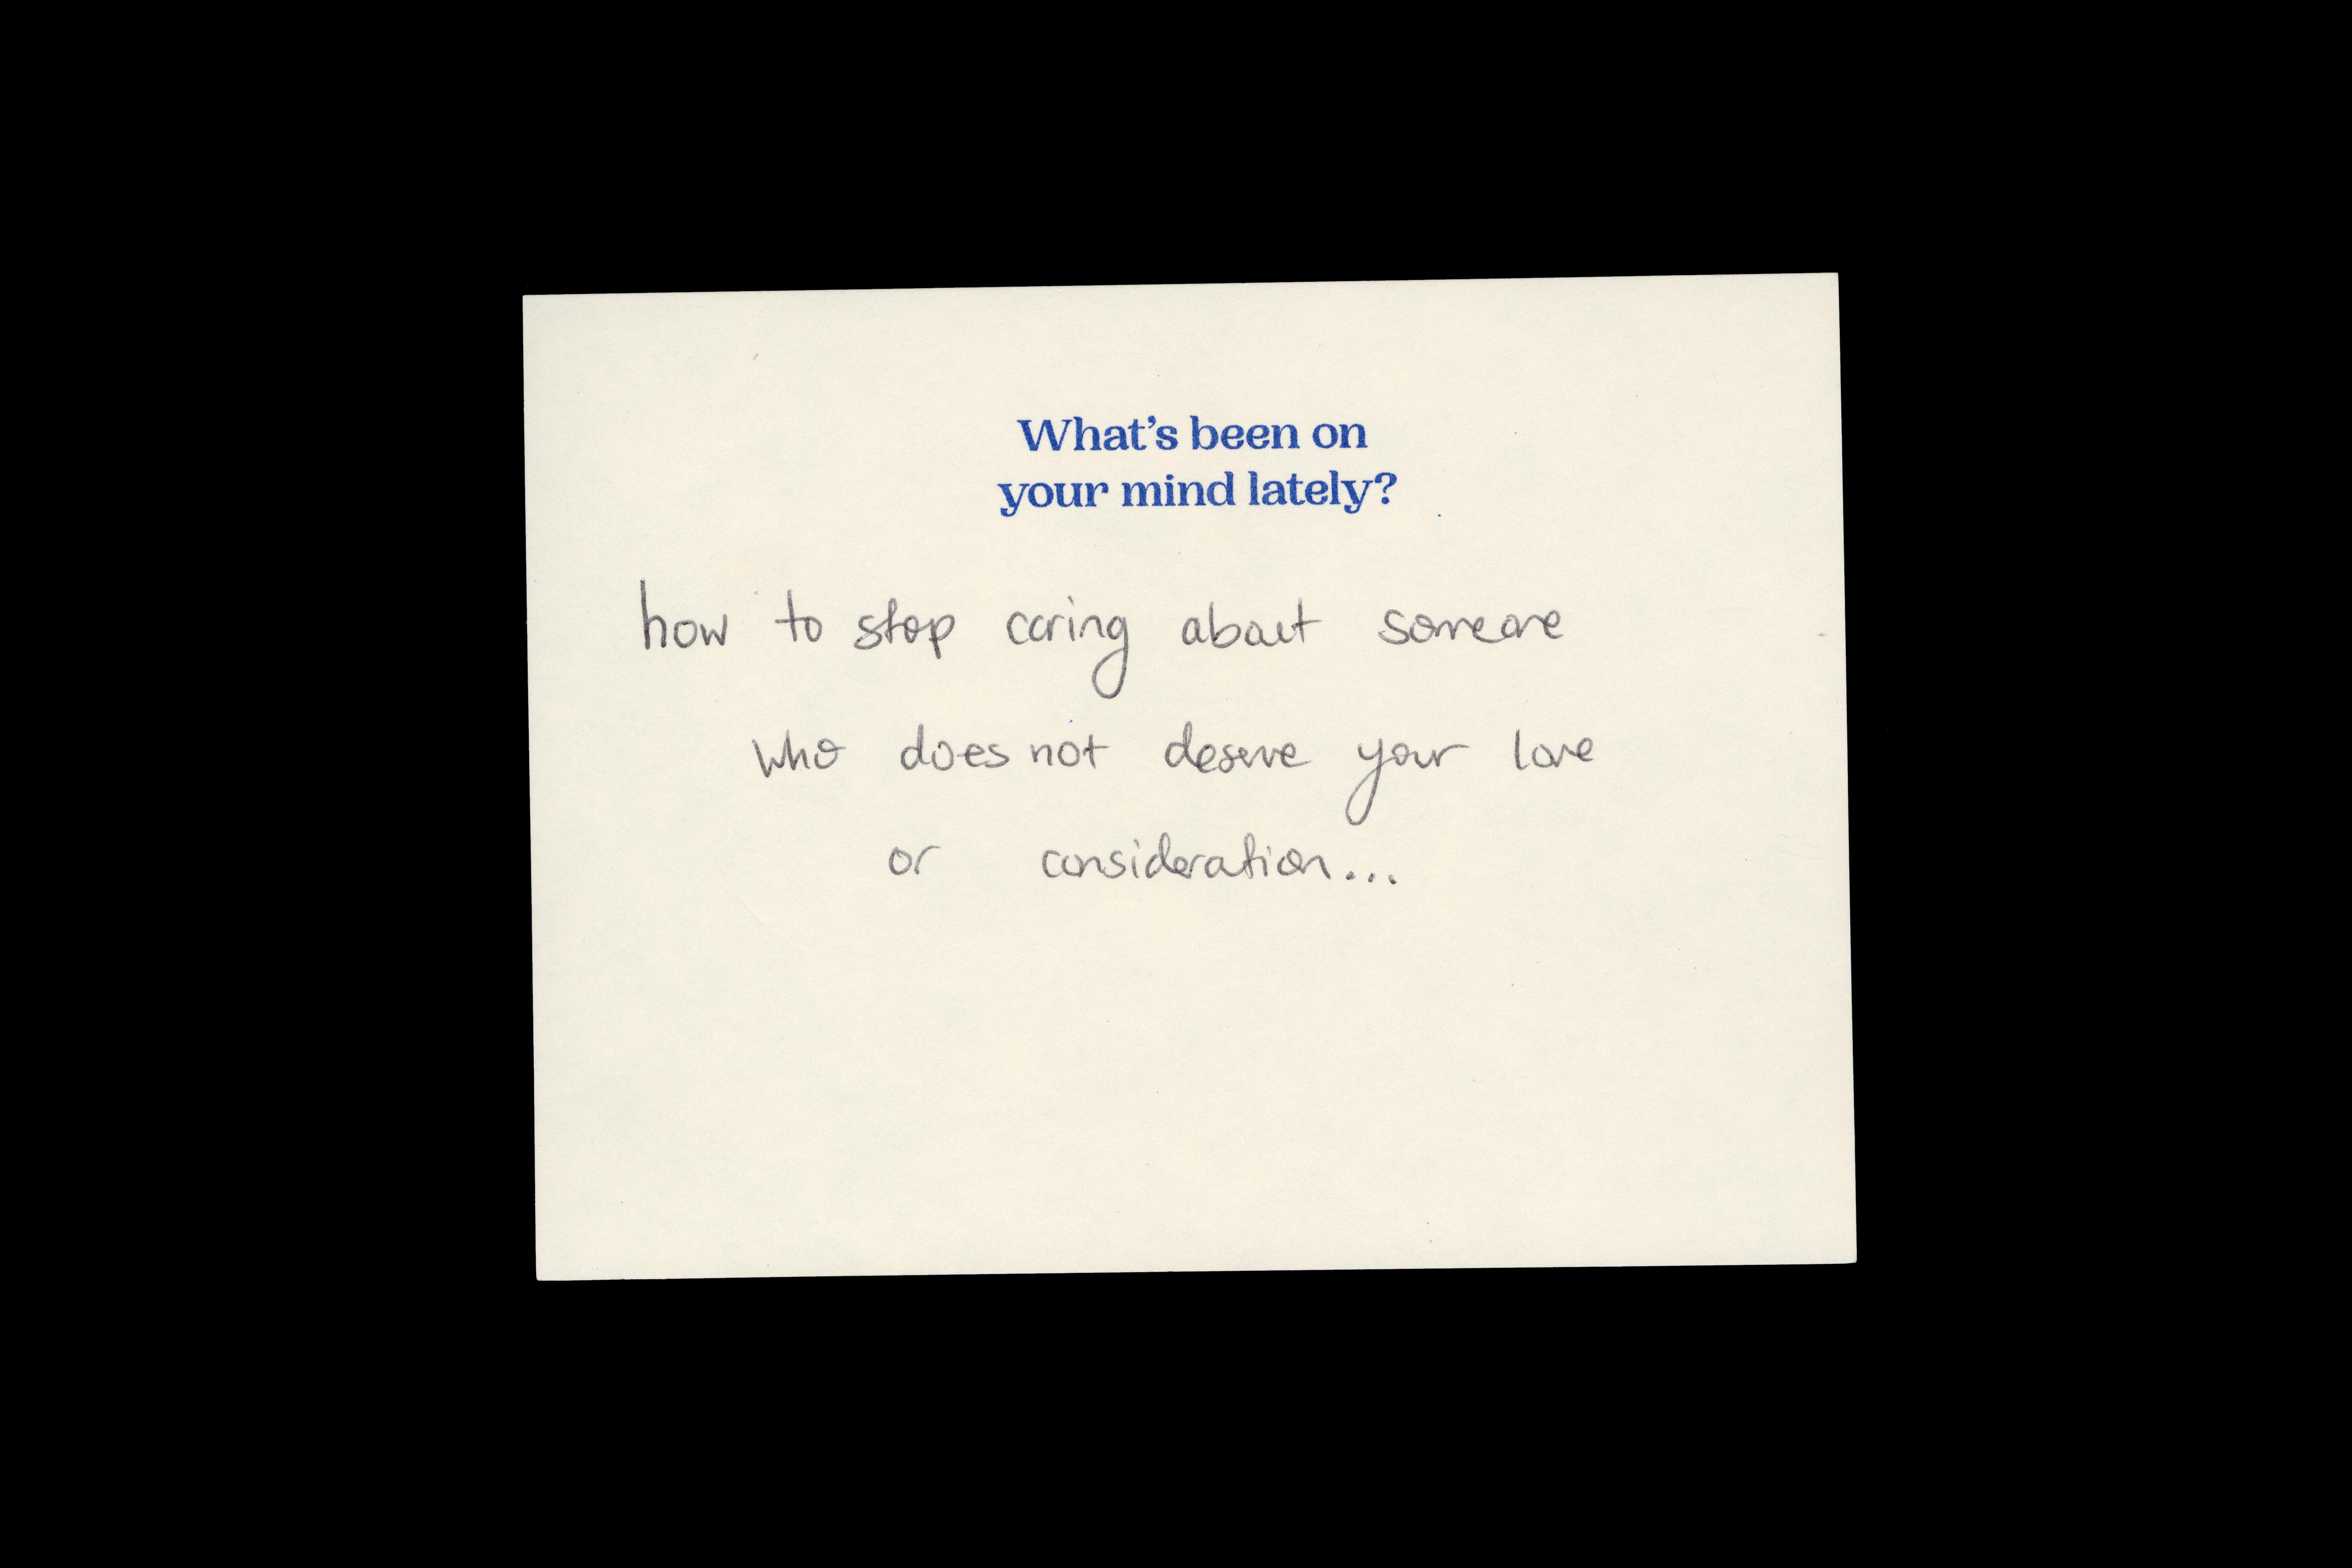 What's been on
your mind lately?
how to stop caring about someone
who does not deserve your love
or consideration...